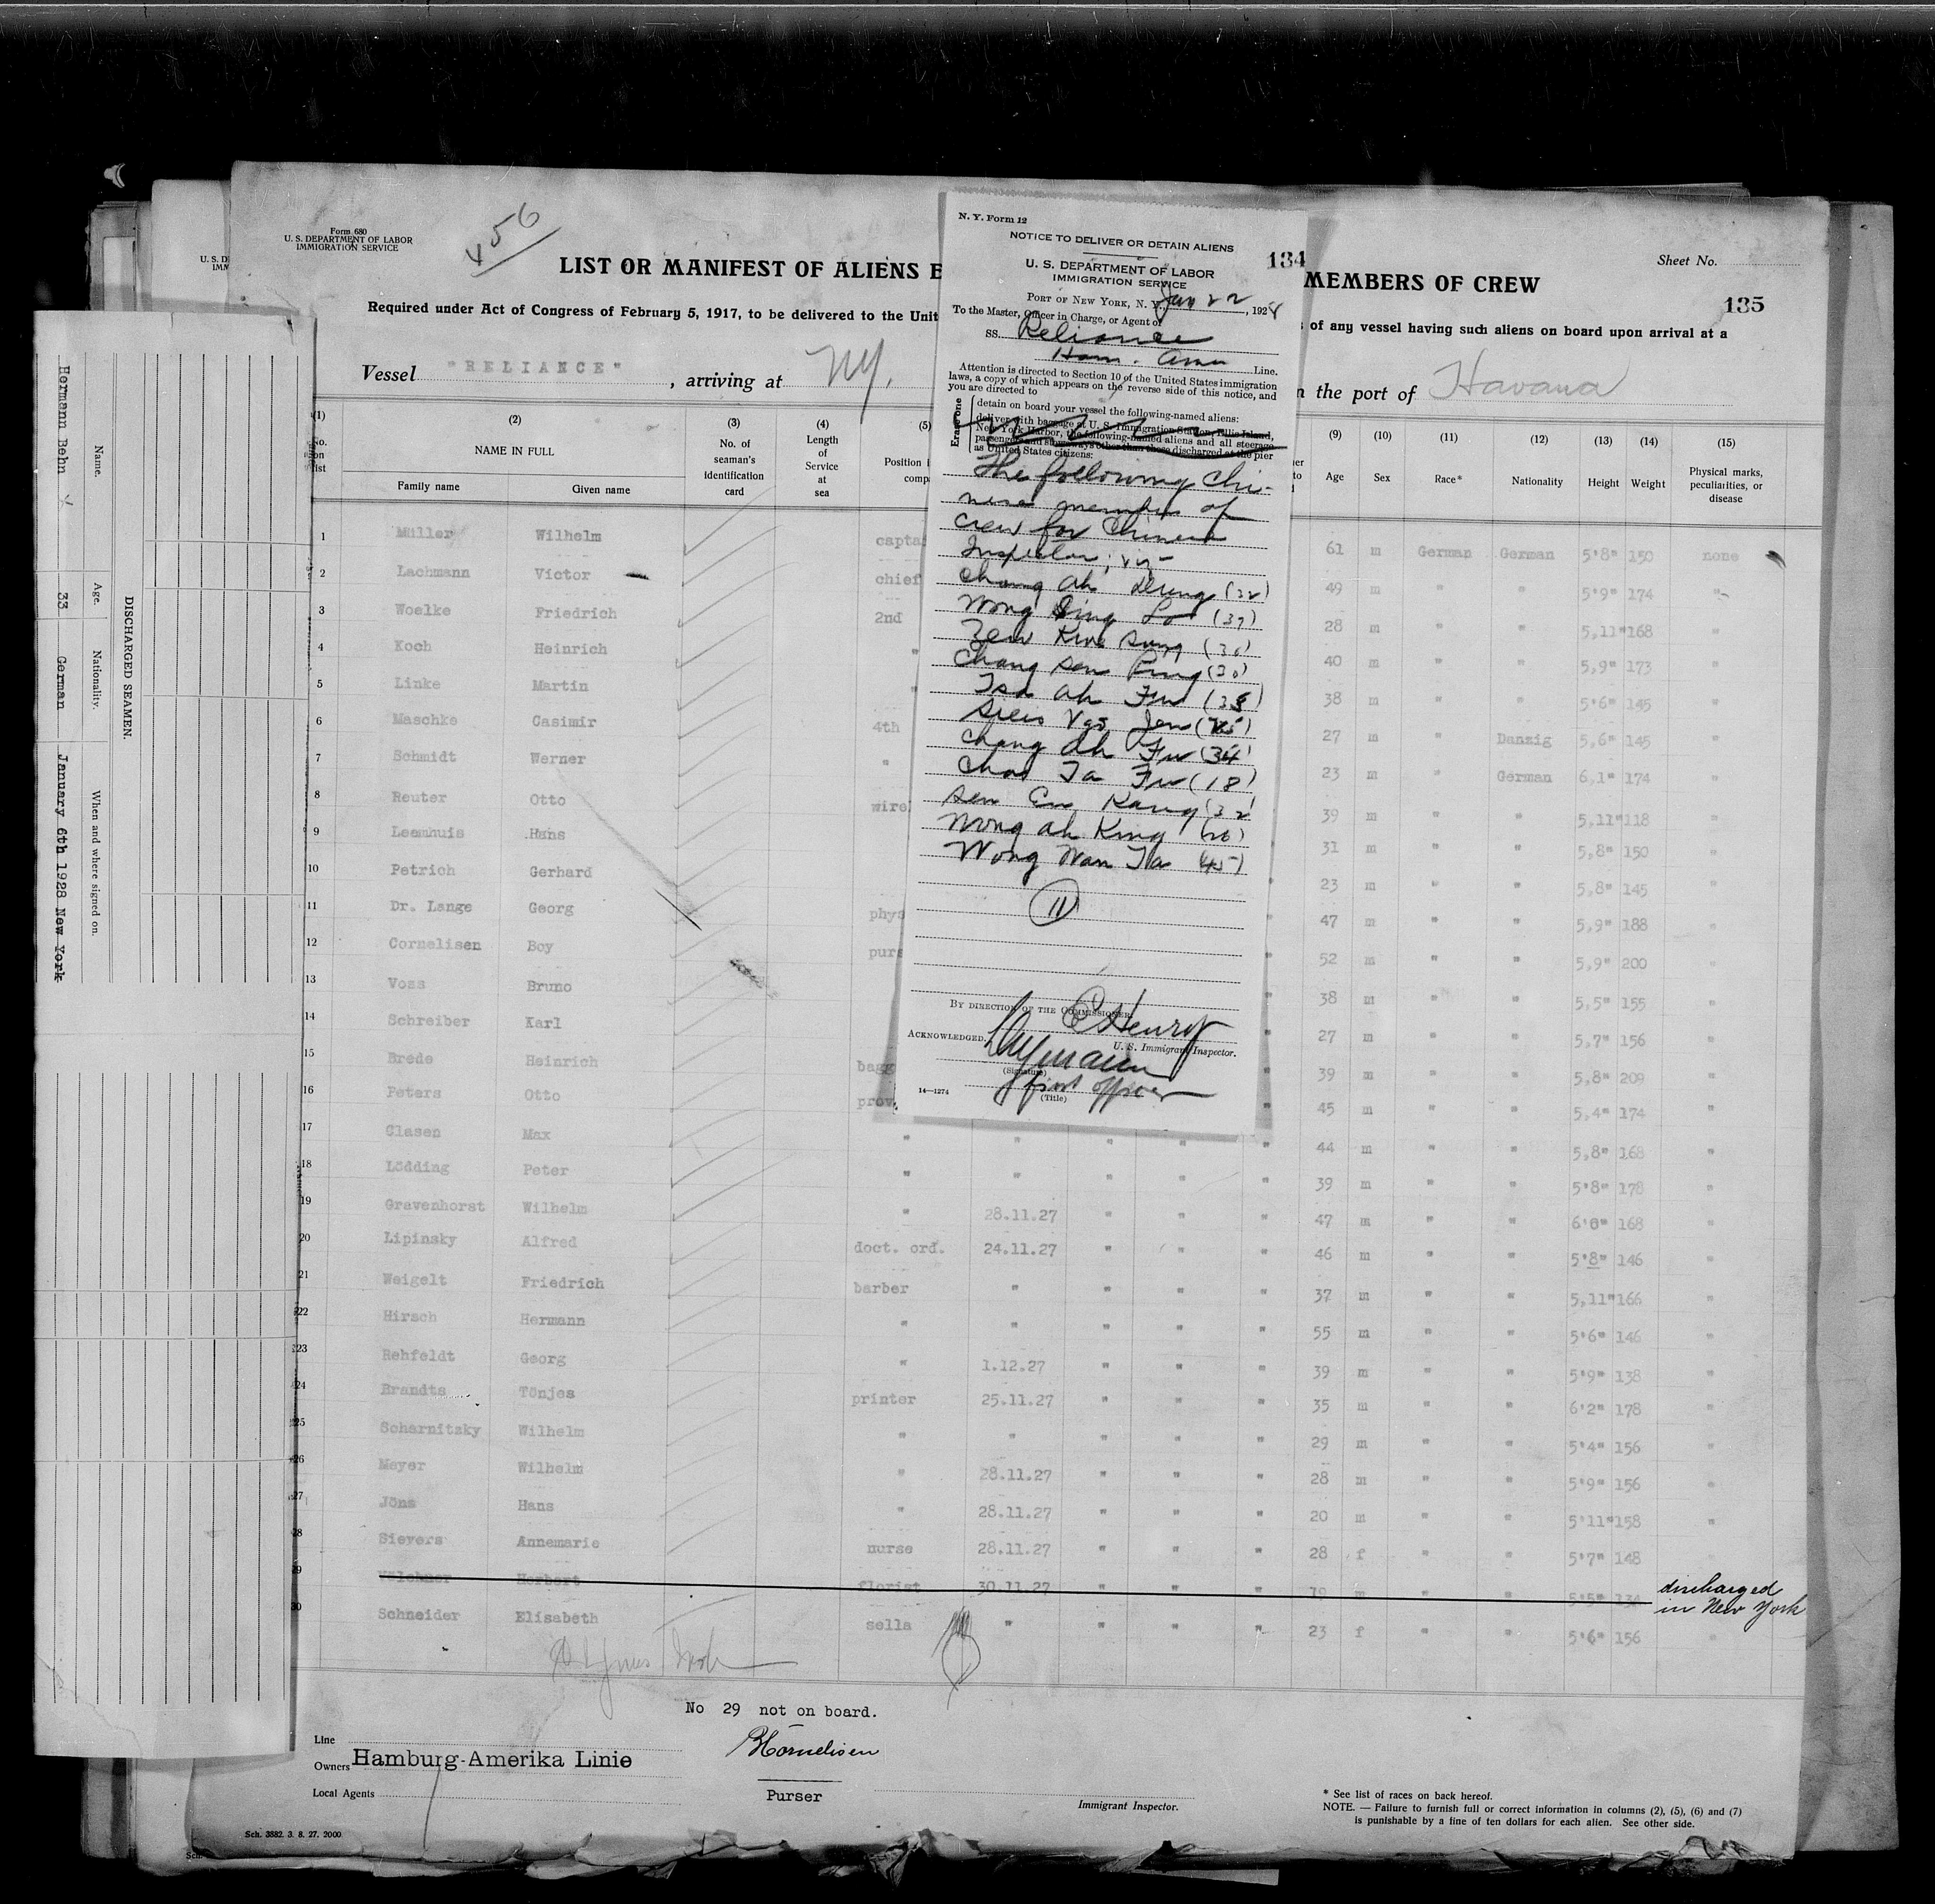 Form 680
U. S. DEPARTMENT OF LABOR
IMMIGRATION SERVICE
456
LIST OR MANIFEST OF ALIENS E
MEMBERS OF CREW
Sheet No.
135
Required under Act of Congress of February 5, 1917, to be delivered to the Unit
s of any vessel having such aliens on board upon arrival at a
Vessel "RELIANCE", arriving at NY.
n the port of Havana
N. Y. Form 12
NOTICE TO DELIVER OR DETAIN ALIENS
134
U. S. DEPARTMENT OF LABOR
IMMIGRATION SERVICE
PORT OF NEW YORK, N. Y., Jan 22, 1928
To the Master, Officer in Charge, or Agent of
SS. Reliance
Ham. Amn Line.
Attention is directed to Section 10 of the United States immigration
laws, a copy of which appears on the reverse side of this notice, and
you are directed to
Erase one
detain on board your vessel the following-named aliens:
deliver with baggage at U. S. Immigration Station, Ellis Island,
New York Harbor, the following-named aliens and all steerage
passengers and stowaways other than those discharged at the pier
as United States citizens:
The following Chi-
nese members of
crew for Chinese
Inspector; viz-
Chang Ah Deung (32)
Wong Sing Lo (37)
Zew Kwe Sung (30)
Chang Sen Ping (30)
Tsa Ah Fu (38)
Vas Jen
Chang Ah Fu (34)
Chas Ta Fu (18)
Sen En Kang (32)
Wong Ah King (26)
Wong Wan Ta (45)
11
BY DIRECTION OF THE COMMISSIONER
E Henry
U. S. Immigrant Inspector.
ACKNOWLEDGED,
(Signature)
first officer
(Title)
14—1274
(1) (2) (3) (4) (5) (9) (10) (11) (12) (13) (14) (15)
No. on list
NAME IN FULL
Family name Given name
No. of seaman's identification card
Length of Service at sea
Position comp
Age Sex Race* Nationality Height Weight Physical marks, peculiarities, or disease
1 Müller Wilhelm capta 61 m German German 5'8" 150 none
2 Lachmann Victor chief 49 m " " 5'9" 174 "
3 Woelke Friedrich 2nd 28 m " " 5,11" 168 "
4 Koch Heinrich " 40 m " " 5,9" 173 "
5 Linke Martin " 38 m " " 5'6" 145 "
6 Maschke Casimir 4th 27 m " Danzig 5,6" 145 "
7 Schmidt Werner " 23 m " German 6,1" 174 "
8 Reuter Otto wire 39 m " " 5,11" 118 "
9 Leemhuis Hans 31 m " " 5,8" 150 "
10 Petrich Gerhard 23 m " " 5,8" 145 "
11 Dr. Lange Georg phys 47 m " " 5,9" 188 "
12 Cornelisen Boy purs 52 m " " 5,9" 200 "
13 Voss Bruno 38 m " " 5,5" 155 "
14 Schreiber Karl 27 m " " 5,7" 156 "
15 Brede Heinrich bagg 39 m " " 5,8" 209 "
16 Peters Otto prov. 45 m " " 5,4" 174 "
17 Clasen Max " " " " " 44 m " " 5,8" 168 "
18 Lödding Peter " " " " " 39 m " " 5'8" 178 "
19 Gravenhorst Wilhelm " 28.11.27 " " " 47 m " " 6'0" 168 "
20 Lipinsky Alfred doct. ord. 24.11.27 " " " 46 m " " 5'8" 146 "
21 Weigelt Friedrich barber " " " " 37 m " " 5,11" 166 "
22 Hirsch Hermann " " " " " 55 m " " 5'6" 146 "
23 Rehfeldt Georg " 1.12.27 " " " 39 m " " 5'9" 138 "
24 Brandts Tönjes printer 25.11.27 " " " 35 m " " 6'2" 178 "
25 Scharnitzky Wilhelm " " " " " 29 m " " 5'4" 156 "
26 Mayer Wilhelm " 28.11.27 " " " 28 m " " 5'9" 156 "
27 Jöns Hans " 28.11.27 " " " 20 m " " 5'11" 158 "
28 Sievers Annemarie nurse 28.11.27 " " " 28 f " " 5'7" 148
29 Herbert florist 30.11.27 " " " 19 m " " 5'5" 134 discharged in New York
30 Schneider Elisabeth sella " " " " 23 f " " 5'6" 156 "
No 29 not on board.
Line
Owners Hamburg-Amerika Linie
Local Agents
BCornelisen
Purser
Immigrant Inspector.
* See list of races on back hereof.
NOTE. — Failure to furnish full or correct information in columns (2), (5), (6) and (7)
is punishable by a fine of ten dollars for each alien. See other side.
Sch. 3882. 3. 8. 27. 2000
DISCHARGED SEAMEN.
Name. Age. Nationality. When and where signed on.
Hermann Behn 33 German January 6th 1928 New York
U. S. D
IMM
Sch.